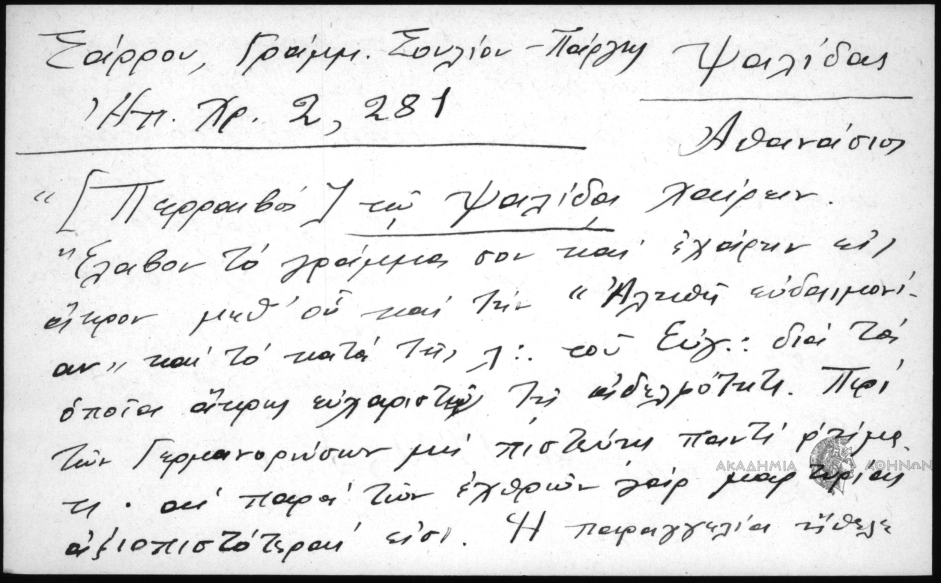 Σάρρου, Γράμμ. Σουλίου - Πάργης
Ψαλίδας
Ἠπ. Χρ. 2, 281
Ἀθανάσιος
"[Περραιβός] τῷ Ψαλίδᾳ χαίρειν.
"Ἔλαβον τὸ γράμμα σου καὶ ἐχάρην εἰς
ἄπειρον μεθ' οὗ καὶ τὴν "Ἀληθῆ εὐδαιμονί-
αν" καὶ τὸ κατὰ τῆς λ:. τοῦ Εὐγ.: διὰ τὰ
ὁποῖα ἄπειρα εὐχαριστῶ τῇ ἀδελφότητι. Περὶ
τῶν Γερμανορώσων μὴ πιστεύῃς παντὶ ῥήμα-
τι. αἱ παρὰ τῶν ἐχθρῶν γὰρ μαρτυρίαι
ἀξιοπιστότεραί εἰσι. Ἡ παραγγελία ἤθελε
ΑΚΑΔΗΜΙΑ ΑΘΗΝΩΝ